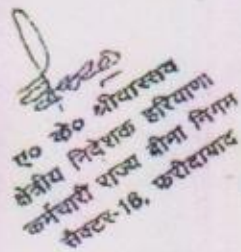 ए० के० श्रीवास्तव
क्षेत्रीय निदेशक हरियाणा
कर्मचारी राज्य बीमा निगम
सैक्टर-16, फरीदाबाद